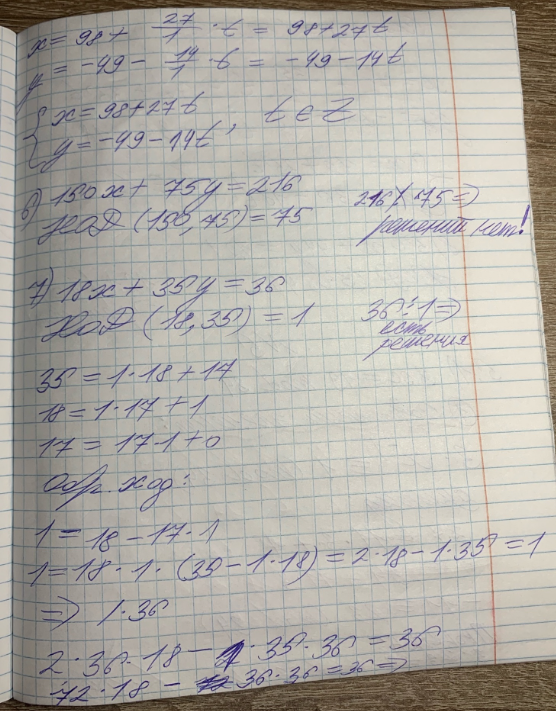 x = 98 + 27/1 · t = 98+27t
y = -49 - 14/1 · t = -49-14t
{ x = 98+27t
{ y = -49-14t , t ∈ Z
6) 150x + 75y = 216
НОД (150,75) = 75
216 ⋮̸ 75 ⇒
решений нет!
7) 18x + 35y = 36
НОД (18,35) = 1
36 ⋮ 1 ⇒
есть
решения
35 = 1·18+17
18 = 1·17+1
17 = 17·1+0
Обр. ход:
1 = 18 - 17·1
1 = 18 · 1 · (35-1·18) = 2·18-1·35 = 1
⇒ | · 36
2·36·18 - 1·35·36 = 36
72·18 - 36·36 = 36 ⇒